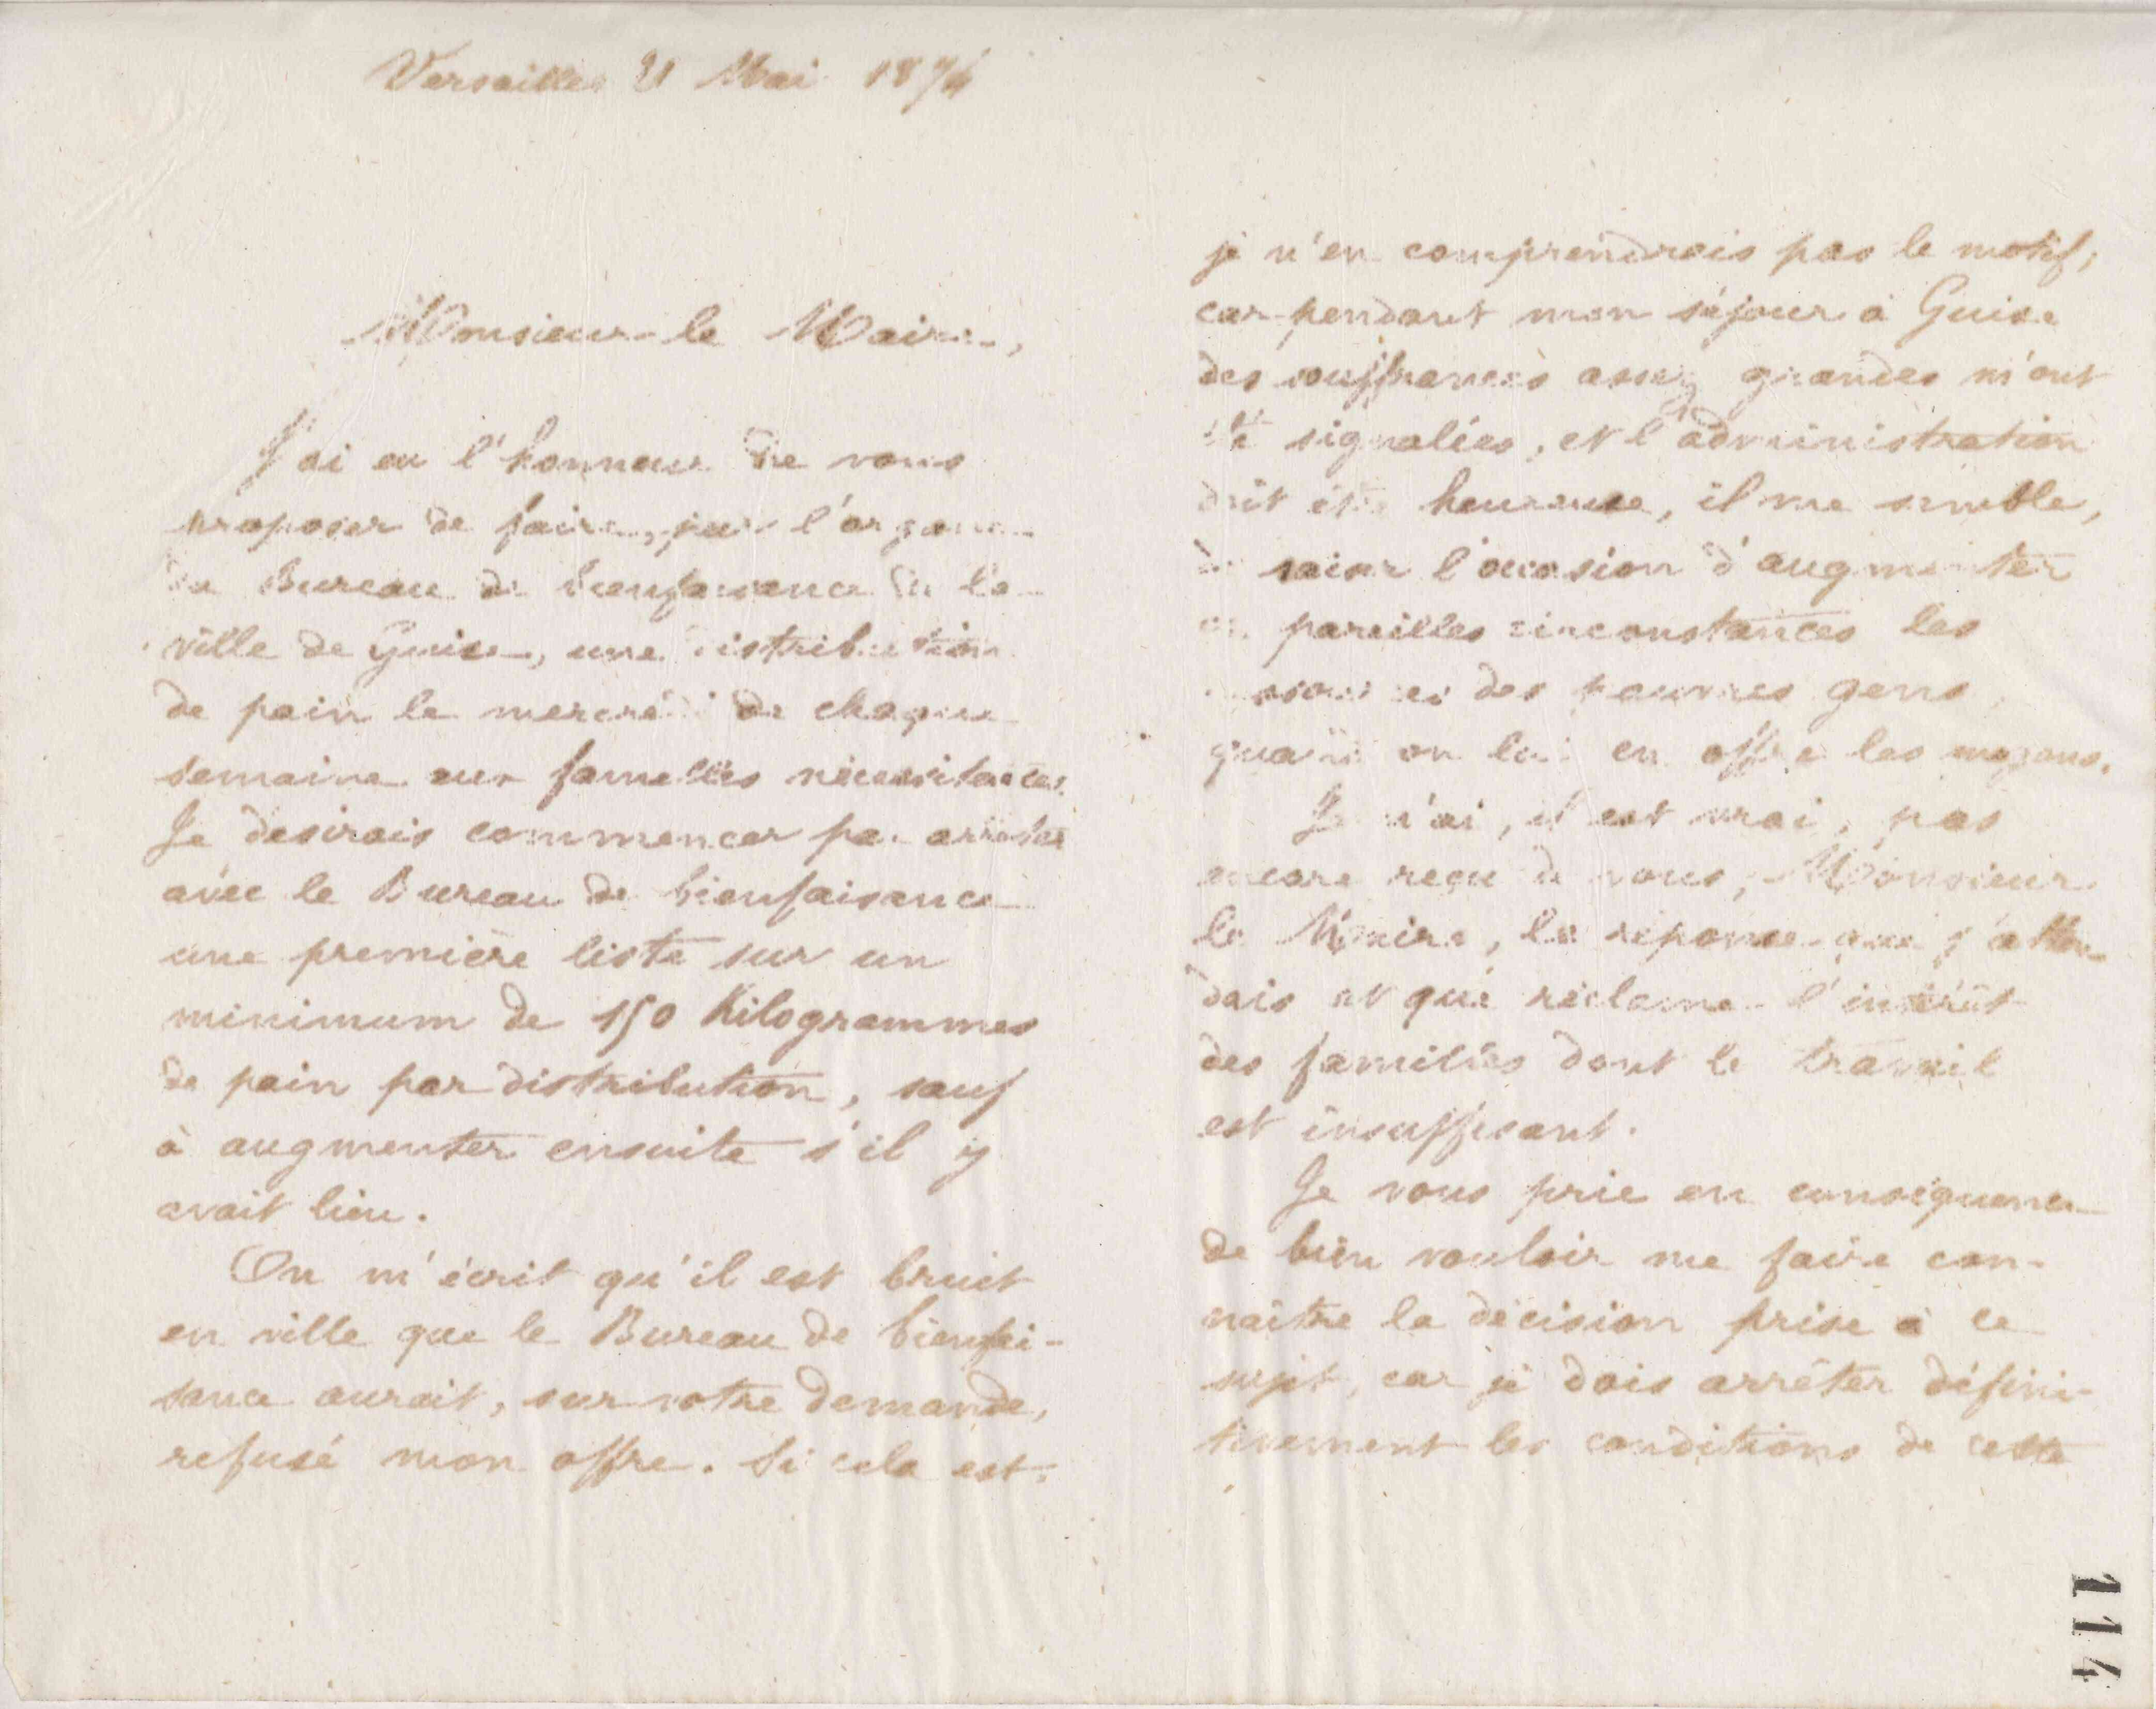 Versailles 21 Mai 1874
Monsieur le Maire,
J'ai eu l'honneur de vous
proposer de faire, par l'organe
du Bureau de bienfaisance de la
ville de Guise, une distribution
de pain le mercredi de chaque
semaine aux familles nécessiteuses.
Je desirais commencer par arrêter
avec le Bureau de bienfaisance
une première liste sur un
minimum de 150 Kilogrammes
de pain par distribution, sauf
à augmenter ensuite s'il y
avait lieu.
On m'écrit qu'il est bruit
en ville que le Bureau de bienfai-
sance aurait, sur votre demande,
refusé mon offre. Si cela est,
je n'en comprendrais pas le motif,
car pendant mon séjour à Guise
des souffrances assez grandes m'ont
été signalées, et l'administration
doit être heureuse, il me semble,
de saisir l'occasion d'augmenter
en pareilles circonstances les
ressources des pauvres gens
quand on lui en offre les moyens.
Je n'ai, il est vrai, pas
encore reçu de vous, Monsieur
le Maire, la réponse que j'atten-
dais et que réclame l'intérêt
des familles dont le travail
est insuffisant.
Je vous prie en conséquence
de bien vouloir me faire con-
naître la décision prise à ce
sujet, car je dois arrêter défini-
tivement les conditions de cette
114